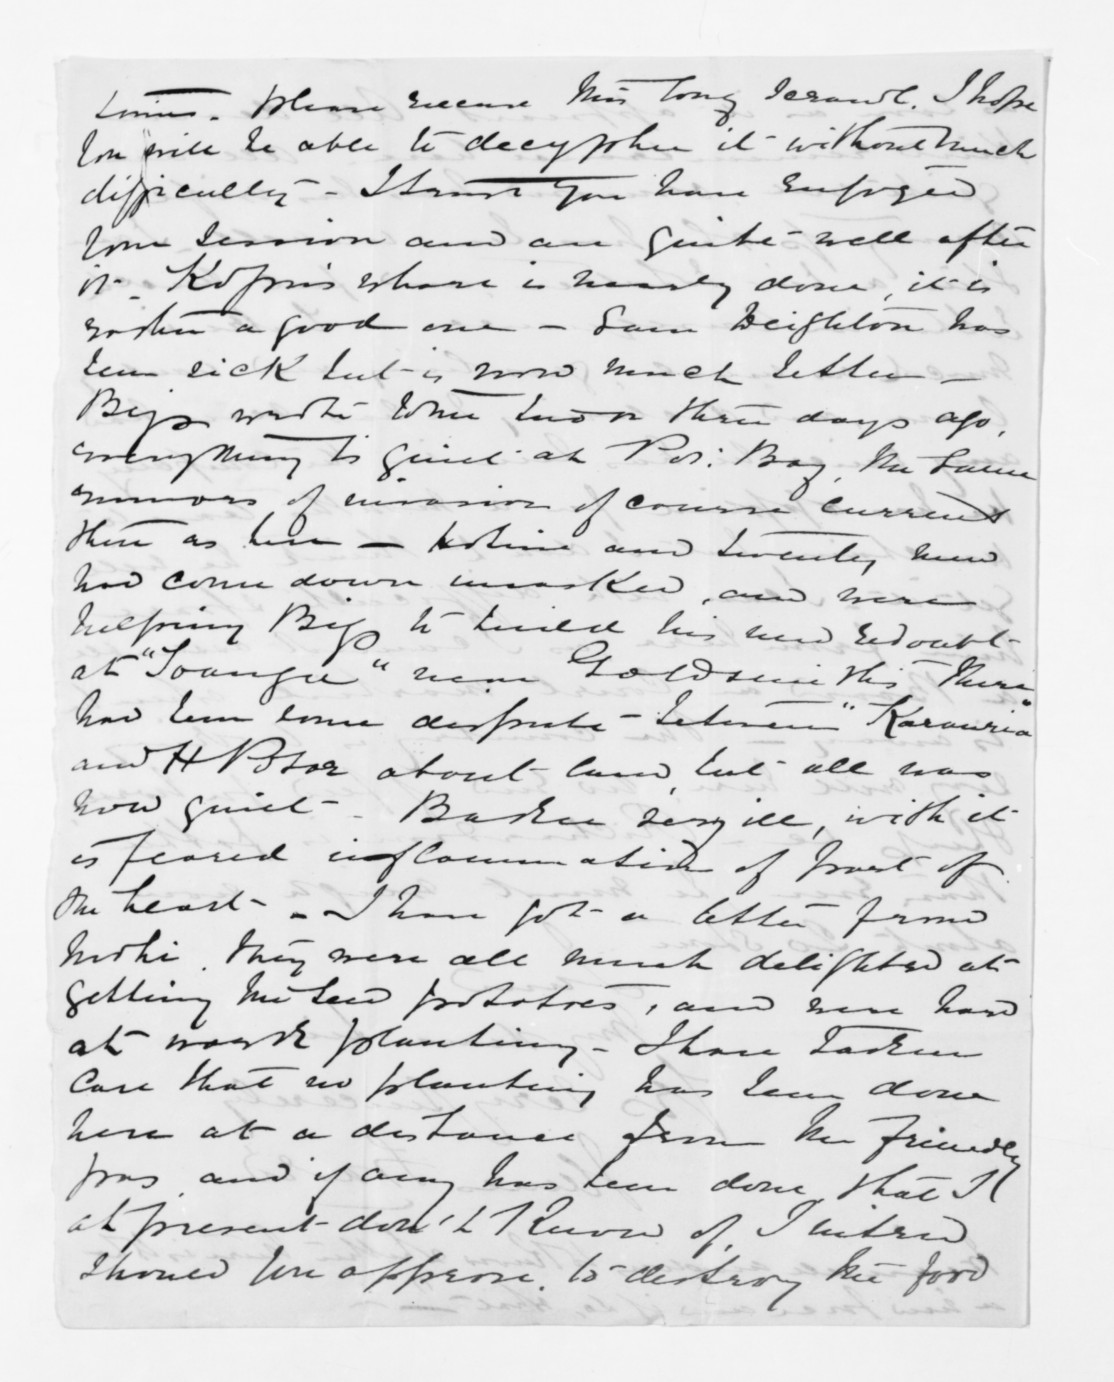 times. please excuse this long scrawl. I hope
You will be able to decypher it without much
difficulty - I trust You have enjoyed
Your session and are quite well after
it. Kopu's whare is nearly done, it is
rather a good one - Sam Deighton has
been sick but is now much better -
Bigs wrote to me two or three days ago,
everything is quiet at Pov: Bay, the same
rumors of invasion of course current
there as here - Hotene and twenty men
had come down unasked, and were
helping Bigs to build his new redoubt
at "Toanga" near Goldsmiths. There
had been some dispute between "Karauria"
and H about land, but all was
now quiet - Barker very ill, with it
is feared inflammation of part of
the heart - I have got a letter from
Mohi. they were all much delighted at
getting the seed potatoes, and were hard
at work planting - I have taken
care that no planting has been done
here at a distance from the friendly
pas and if any has been done, that I
at present don't know of, I intend
should You approve. to destroy the food